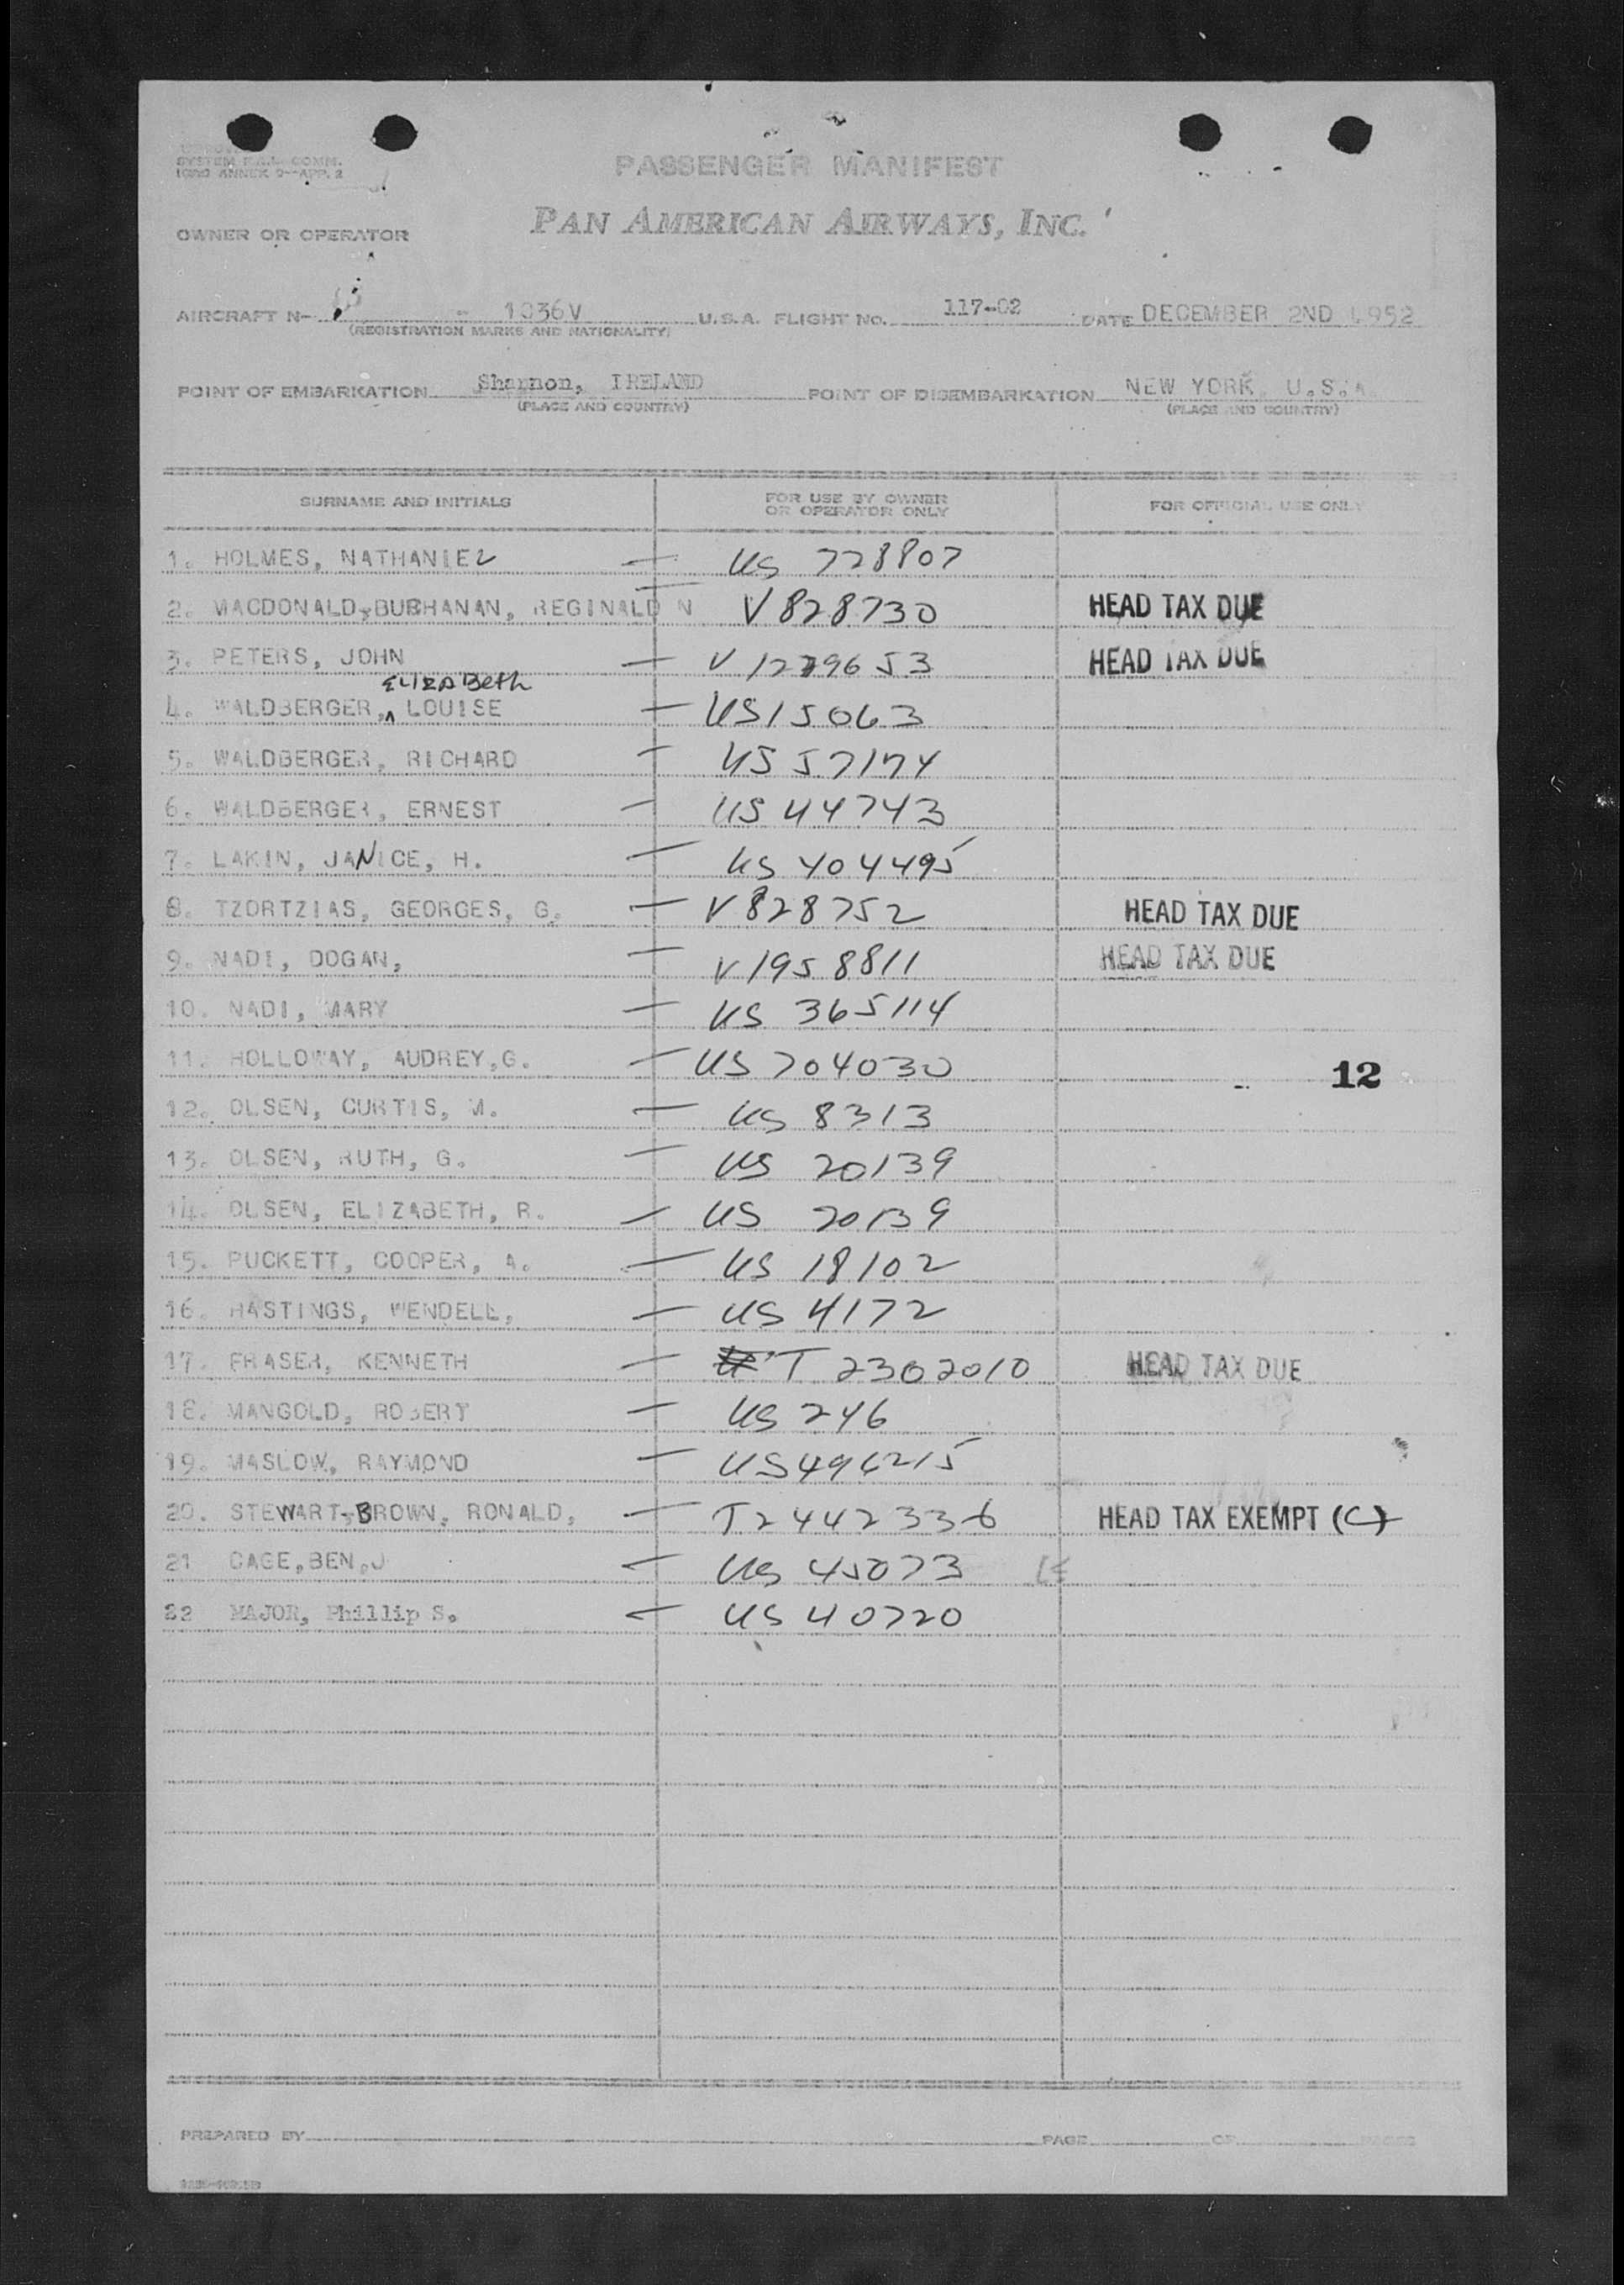 SYSTEM F.A.L. COMM.
ICAO ANNEX 9—APP. 2
PASSENGER MANIFEST
OWNER OR OPERATOR PAN AMERICAN AIRWAYS, INC.
AIRCRAFT N- - 1036V U.S.A. FLIGHT NO. 117-02 DATE DECEMBER 2ND 1952
(REGISTRATION MARKS AND NATIONALITY)
POINT OF EMBARKATION Shannon, IRELAND POINT OF DISEMBARKATION NEW YORK, U.S.A.
(PLACE AND COUNTRY) (PLACE AND COUNTRY)
SURNAME AND INITIALS FOR USE BY OWNER OR OPERATOR ONLY FOR OFFICIAL USE ONLY
1. HOLMES, NATHANIEL — US 728807
2. MACDONALD-BUCHANAN, REGINALD N — V 828730 HEAD TAX DUE
3. PETERS, JOHN — V 1279653 HEAD TAX DUE
ELIZABeth
4. WALDBERGER, LOUISE — US 15063
5. WALDBERGER, RICHARD — US 57174
6. WALDBERGER, ERNEST — US 44743
7. LAKIN, JANICE, H. — US 404495
8. TZORTZIAS, GEORGES, G. — V 828752 HEAD TAX DUE
9. NADI, DOGAN, — V 1958811 HEAD TAX DUE
10. NADI, MARY — US 365114
11. HOLLOWAY, AUDREY,G. — US 704030 12
12. OLSEN, CURTIS, M. — US 8313
13. OLSEN, RUTH, G. — US 20139
14. OLSEN, ELIZABETH, R. — US 20139
15. PUCKETT, COOPER, A. — US 18102
16. HASTINGS, WENDELL, — US 4172
17. FRASER, KENNETH — T 2302010 HEAD TAX DUE
18. MANGOLD, ROBERT — US 246
19. MASLOW, RAYMOND — US 496215
20. STEWART-BROWN, RONALD, — T2442336 HEAD TAX EXEMPT (C)
21 CAGE,BEN,J — US 45073
22 MAJOR, Phillip S. — US 40720
PREPARED BY PAGE OF PAGES